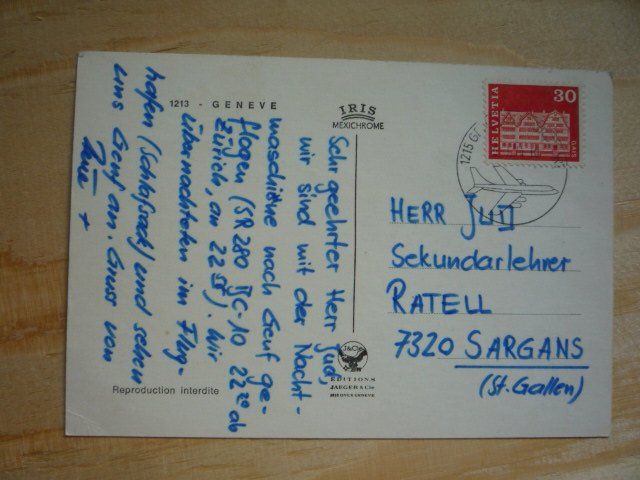 1213 - GENEVE
IRIS
MEXICHROME
Sehr geehrter Herr Jud,
wir sind mit der Nacht-
maschine nach Genf ge-
flogen (SR280 DC-10 22²⁰ ab
Zürich, an 22⁵⁵). Wir
übernachteten im Flug-
hafen (Schlafsack) und sehen
uns Genf an. Gruss von
J&Cie
EDITIONS
JAEGER & Cie
GENEVE
Reproduction interdite
HELVETIA
30
GAIS
1215
HERR Jud
Sekundarlehrer
RATELL
7320 SARGANS
(St. Gallen)